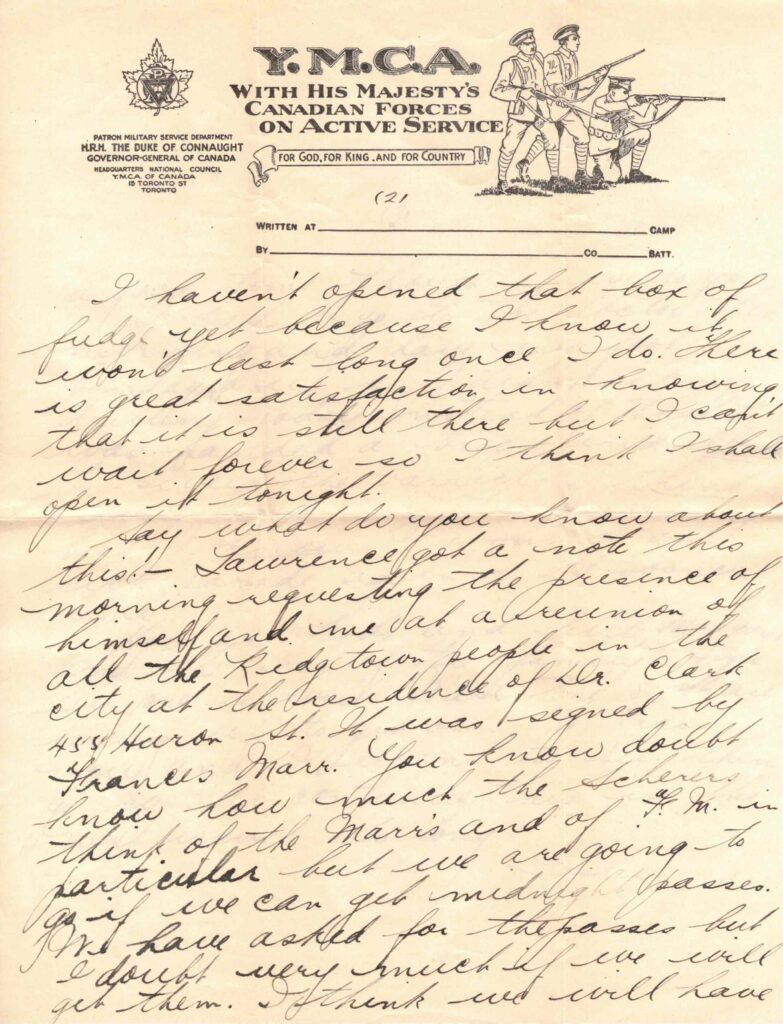 Y.M.C.A.
WITH HIS MAJESTY'S
CANADIAN FORCES
ON ACTIVE SERVICE
FOR GOD, FOR KING, AND FOR COUNTRY
PATRON MILITARY SERVICE DEPARTMENT
H.R.H. THE DUKE OF CONNAUGHT
GOVERNOR-GENERAL OF CANADA
HEADQUARTERS NATIONAL COUNCIL
Y.M.C.A. OF CANADA
15 TORONTO ST
TORONTO
(2)
WRITTEN AT CAMP
BY CO. BATT.
I haven't opened that box of
fudge yet because I know it
won't last long once I do. There
is great satisfaction in knowing
that it is still there but I can't
wait forever so I think I shall
open it tonight.
Say what do you know about
this! – Lawrence got a note this
morning requesting the presence of
himself and me at a reunion of
all the Ridgtown people in the
city at the residence of Dr. Clark
455 Huron St. It was signed by
Frances Marr. You know doubt
know how much the Scherers
think of the Marrs and of F. M. in
particular but we are going to
go if we can get midnight passes.
We have asked for the passes but
I doubt very much if we will
get them. I think we will have